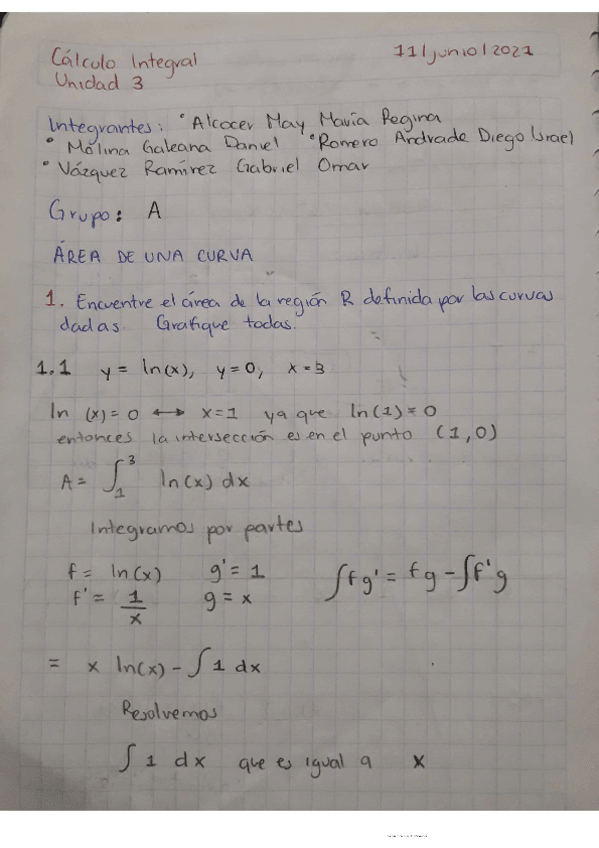 Cálculo Integral 11/junio/2021
Unidad 3
Integrantes: • Alcocer May María Regina
• Molina Galeana Daniel • Romero Andrade Diego Israel
• Vázquez Ramírez Gabriel Omar
Grupo: A
ÁREA DE UNA CURVA
1. Encuentre el área de la región R definida por las curvas
dadas. Grafique todas.
1.1 y = ln(x), y=0, x=3
ln (x)=0 ↔ x=1 ya que ln(1)=0
entonces la intersección es en el punto (1,0)
A = ∫₁³ ln(x) dx
Integramos por partes
f = ln(x) g' = 1 ∫fg' = fg - ∫f'g
f' = 1/x g = x
= x ln(x) - ∫ 1 dx
Resolvemos
∫ 1 dx que es igual a x